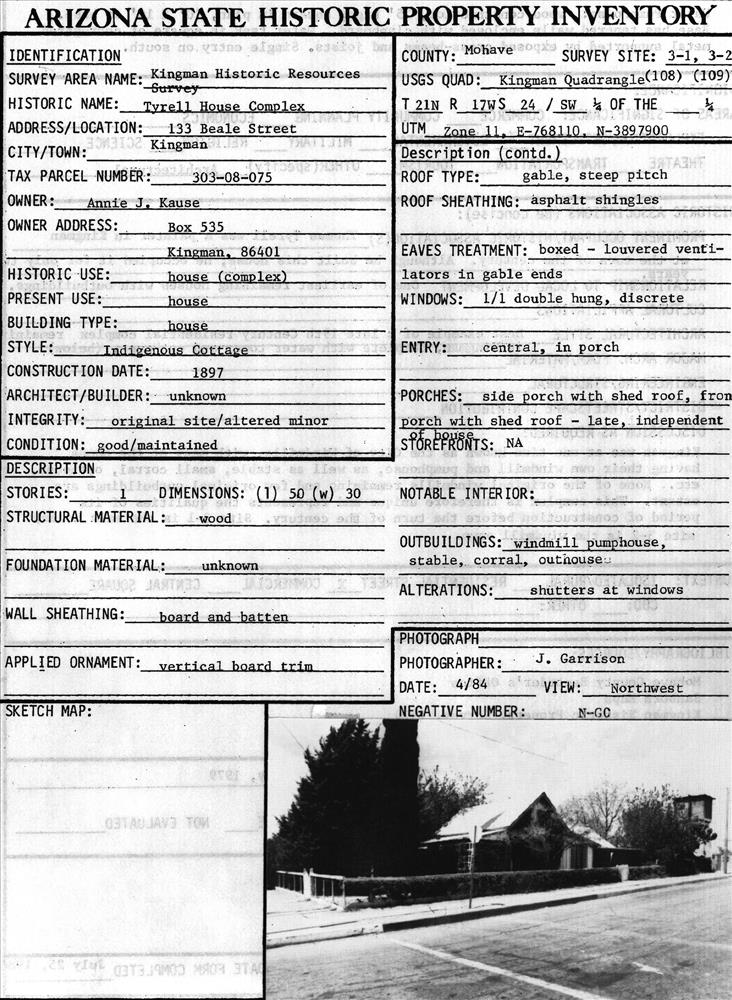 ARIZONA STATE HISTORIC PROPERTY INVENTORY
IDENTIFICATION
SURVEY AREA NAME: Kingman Historic Resources
Survey
HISTORIC NAME: Tyrell House Complex
ADDRESS/LOCATION: 133 Beale Street
CITY/TOWN: Kingman
TAX PARCEL NUMBER: 303-08-075
OWNER: Annie J. Kause
OWNER ADDRESS: Box 535
Kingman, 86401
HISTORIC USE: house (complex)
PRESENT USE: house
BUILDING TYPE: house
STYLE: Indigenous Cottage
CONSTRUCTION DATE: 1897
ARCHITECT/BUILDER: unknown
INTEGRITY: original site/altered minor
CONDITION: good/maintained
DESCRIPTION
STORIES: 1 DIMENSIONS: (l) 50 (w) 30
STRUCTURAL MATERIAL: wood
FOUNDATION MATERIAL: unknown
WALL SHEATHING: board and batten
APPLIED ORNAMENT: vertical board trim
SKETCH MAP:
COUNTY: Mohave SURVEY SITE: 3-1, 3-2
USGS QUAD: Kingman Quadrangle (108) (109)
T 21N R 17W S 24 / SW ¼ OF THE ¼
UTM Zone 11, E-768110, N-3897900
Description (contd.)
ROOF TYPE: gable, steep pitch
ROOF SHEATHING: asphalt shingles
EAVES TREATMENT: boxed - louvered venti-
lators in gable ends
WINDOWS: 1/1 double hung, discrete
ENTRY: central, in porch
PORCHES: side porch with shed roof, fron
porch with shed roof - late, independent
of house
STOREFRONTS: NA
NOTABLE INTERIOR:
OUTBUILDINGS: windmill pumphouse,
stable, corral, outhouse
ALTERATIONS: shutters at windows
PHOTOGRAPH
PHOTOGRAPHER: J. Garrison
DATE: 4/84 VIEW: Northwest
NEGATIVE NUMBER: N-GC